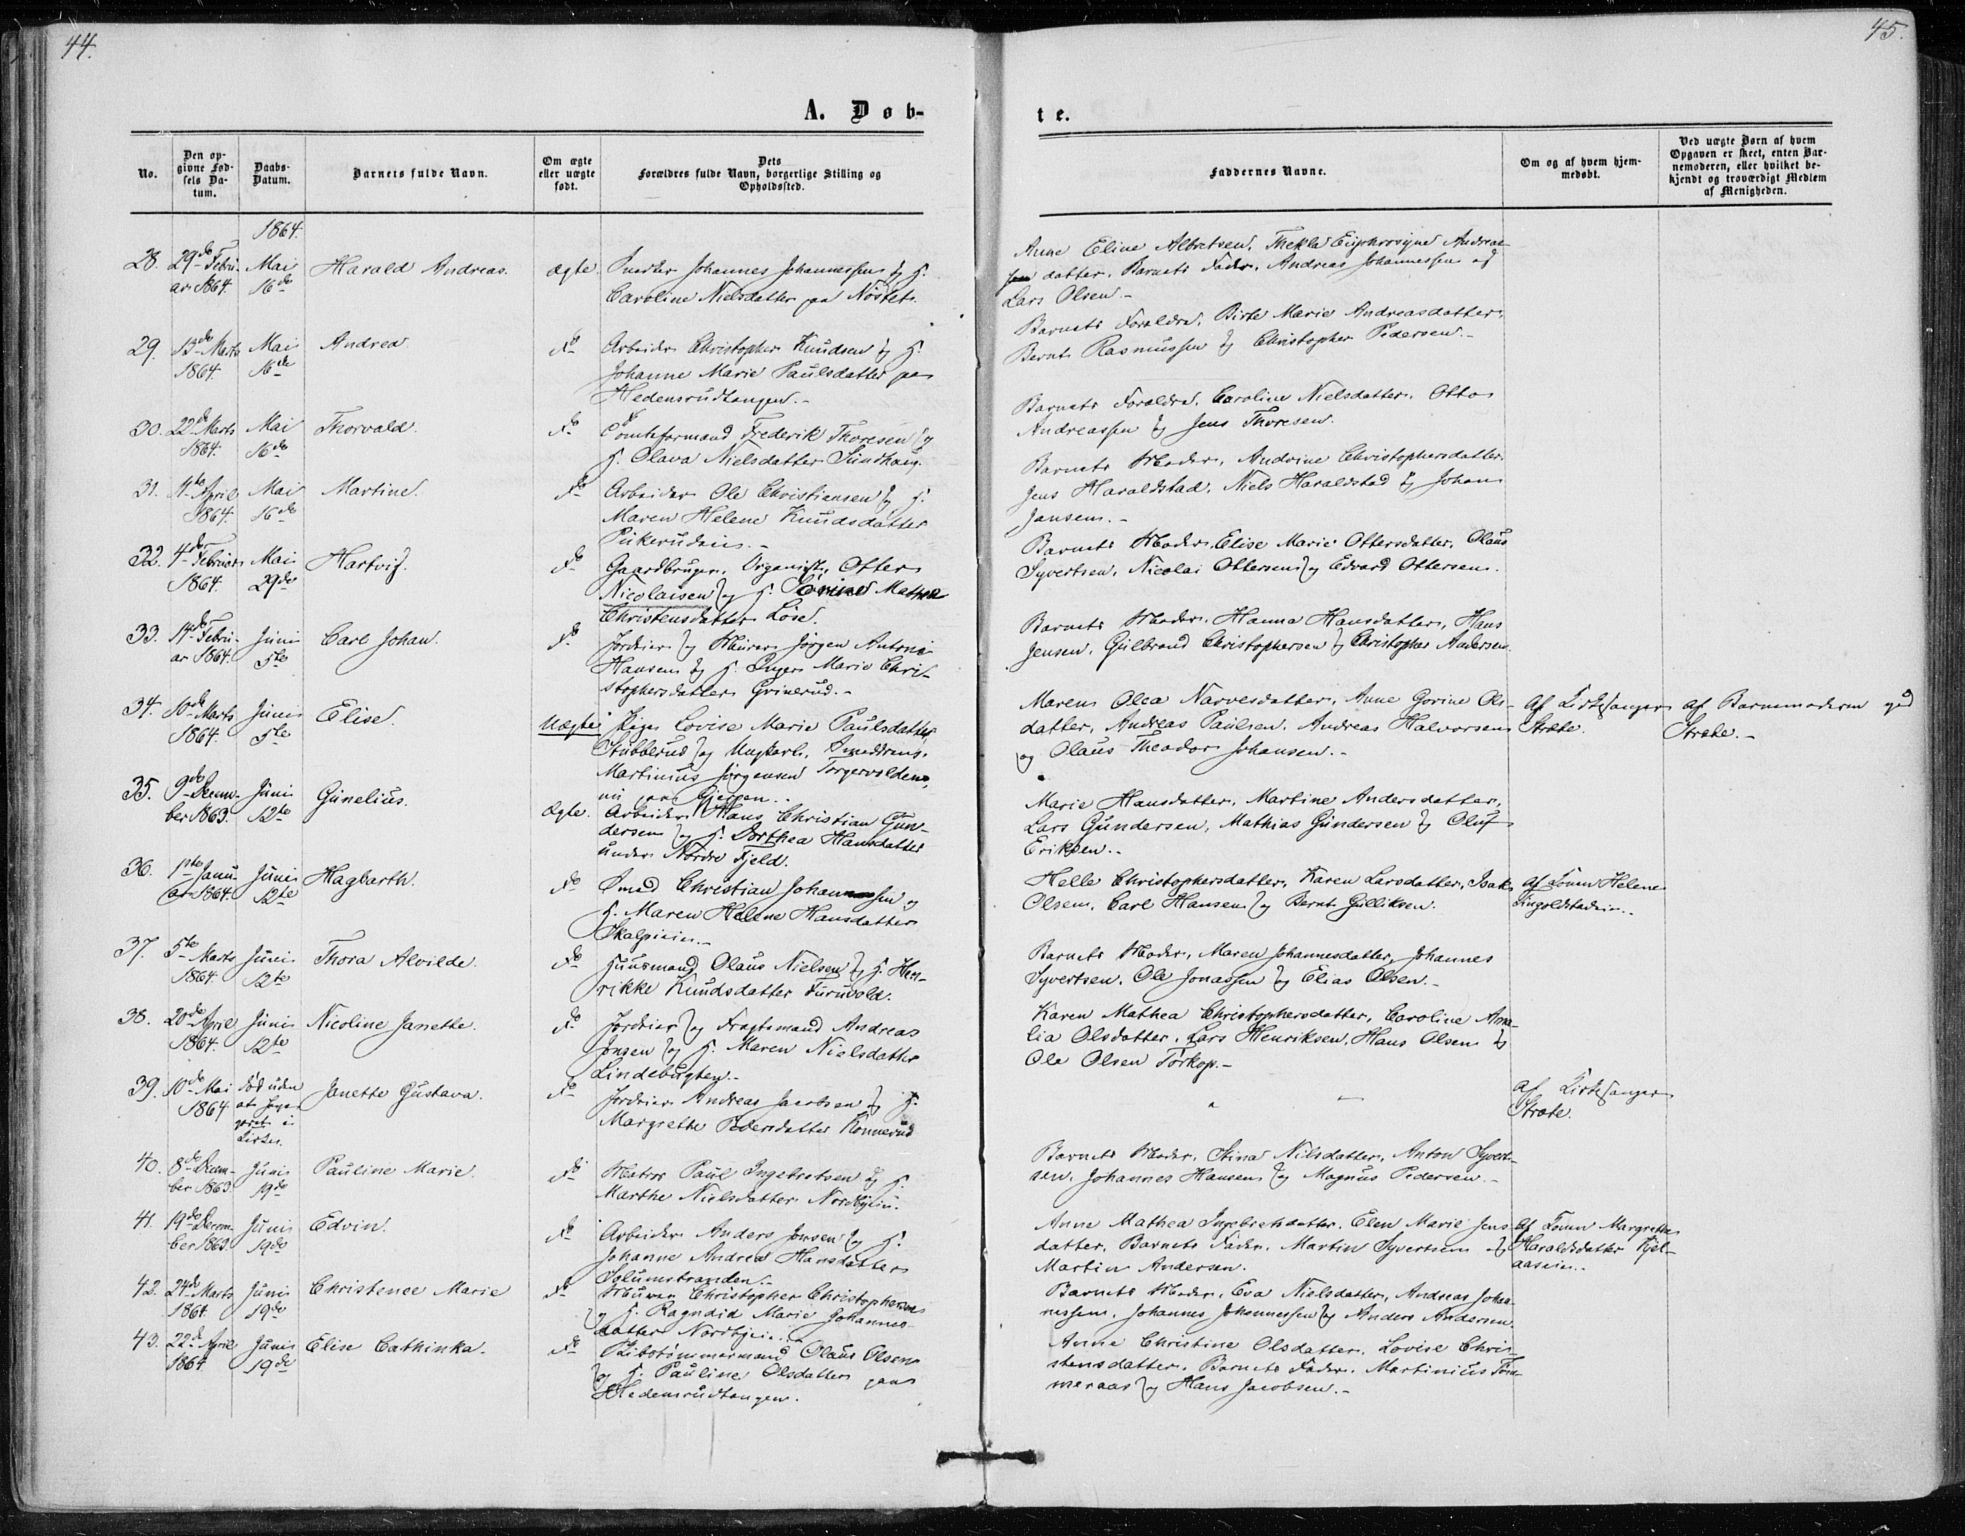 44.
45.
A. Døb-
te.
No.
Den op-
givne Fød-
sels Da-
tum.
Daabs-
Datum.
Barnets fulde Navn.
Om ægte
eller uægte
født.
Dets
Forældres fulde Navn, borgerlige Stilling og
Opholdssted.
Faddernes Navne.
Om og af hvem hjem-
medøbt.
Ved uægte Børn af hvem
Opgaven er skeet, enten Bar-
nemoderen, eller hvilket be-
kjendt og troværdigt Medlem
af Menigheden.
1864.
28. 29de Febru- Mai Harald Andreas. ægte. Snedker Johannes Johannessen og H.
ar 1864. 16de Caroline Nielsdatter paa Nøstet.
Anne Eline Albretsen, Thekla Euphrosyne Andreas-
datter, Barnets Fader, Andreas Johannessen og
Lars Olsen.-
29. 13de Marts Mai Andrea. Do Arbeider Christopher Knudsen og H.
1864. 16de Johanne Marie Paulsdatter paa
Hedensrudtangen.-
Barnets Forældre, Birte Marie Andreasdatter,
Bernt Rasmussen og Christopher Pedersen.-
30. 22de Marts Mai Thorvald. Do Tomteformand Frederik Thoresen og
1864. 16de H. Olava Nielsdatter Sundhaug.
Barnets Forældre, Caroline Nielsdatter, Otto
Andreassen og Jens Thoresen.
31. 4de April Mai Martine. Do Arbeider Ole Christiansen og H.
1864. 16de Maren Helene Knudsdatter
Pikerudeie.-
Barnets Moder, Andrine Christophersdatter,
Jens Haraldstad, Niels Haraldstad og Johan
Jansen.-
32. 4de Februar Mai Hartvig. Do Gaardbruger, Organist, Otter
1864. 29de Nicolaisen og H. Sørine Mathea
Christensdatter Løse.
Barnets Moder, Elise Marie Ottersdatter, Olaus
Syvertsen, Nicolai Ottersen og Edvard Ottersen.
33. 14de Febru- Juni Carl Johan. Do Jordeier og Murer Jørgen Anton
ar 1864. 5te Hansen og H. Inger Marie Chri-
stophersdatter Grinerud.-
Barnets Moder, Hanna Hansdatter, Hans
Jensen, Gulbrand Christophersen og Christopher Andersen.
34. 10de Marts Juni Elise. Uægte Pige Lovise Marie Paulsdatter
1864. 5te Stubberud og Ungkarl, Smeddreng,
Martinius Jørgensen Torgersolden,
nu paa Bjergen.-
Maren Olea Narvesdatter, Anne Gorine Ols-
datter, Andreas Paulsen, Andreas Halvorsen
og Olaus Theodor Johansen.-
Af Kirkesanger
Stræte.
af Barnemoderen og
Stræte.-
35. 9de Decem- Juni Gunelius. Ægte. Arbeider Hans Christian Gun-
ber 1863. 12te dersen og H. Dorthea Hansdatter
under Nordre Fjeld.
Marie Hansdatter, Martine Andersdatter,
Lars Gundersen, Mathias Gundersen og Oluf
Eriksen.-
36. 1ste Janu- Juni Hagbarth. Do Smed Christian Johannessen og
ar 1864. 12te H. Maren Helene Hansdatter
Skalpeien.-
Helle Christophersdatter, Karen Larsdatter, Isak
Olsen, Carl Hansen og Bernt Gulliksen.
af Konen Helene
Engolstadeie.-
37. 5te Marts Juni Thora Alvilde. Do Huusmand Olaus Nielsen og H. Hen-
1864. 12te rikke Knudsdatter Furuvold.
Barnets Moder, Maren Johannesdatter, Johannes
Syvertsen, Ole Jonassen og Elias Olsen.-
38. 20de April Juni Nicoline Janette. Do Jordeier og Fragtemand Andreas
1864. 12te Jonsen og H. Maren Nielsdatter
Lindebugten.-
Karen Mathea Christophersdatter, Caroline Ama-
lia Olsdatter, Lars Henriksen, Hans Olsen og
Ole Olsen Torkop.-
39. 10de Mai Død uden Janette Gustava. Do Jordeier Andreas Jacobsen og H.
1864 at Margrethe Pedersdatter Konnerud
i
Kirken.
af Kirkesanger
Stræte.
40. 8de Decem- Juni Pauline Marie. Do Matros Paul Ingebretsen og H.
ber 1863 19de Marthe Nielsdatter Nordbylie.
Barnets Moder, Stina Nilsdatter, Anton Syvert-
sen, Johannes Hansen og Magnus Pedersen.-
41. 19de Decem- Juni Edvin. Do Arbeider Anders Jonsen og H.
ber 1863. 19de Johanne Andrea Hansdatter
Solumstranden.-
Anne Mathea Ingebretsdatter, Elen Marie Jens-
datter, Barnets Fader, Martin Syvertsen og
Martin Andersen.
Af Konen Margrethe
Haraldsdatter Kjel-
aaseie.-
42. 24de Marts Juni Christence Marie Do Murer Christopher Christophersen
1864. 19de og H. Ragndid Marie Johannes-
datter Nordbyeie.-
Barnets Moder, Eva Nielsdatter, Andreas Johan-
nessen, Johannes Johannessen og Anders Andersen.
43. 22de April Juni Elise Cathinka. Do Skibstømmermand Olaus Olsen
1864. 19de og H. Pauline Olsdatter paa
Hedensrudtangen.
Anne Christine Olsdatter, Lovise Chri-
stensdatter, Barnets Fader, Martinius Tom-
meraas og Hans Jacobsen.-